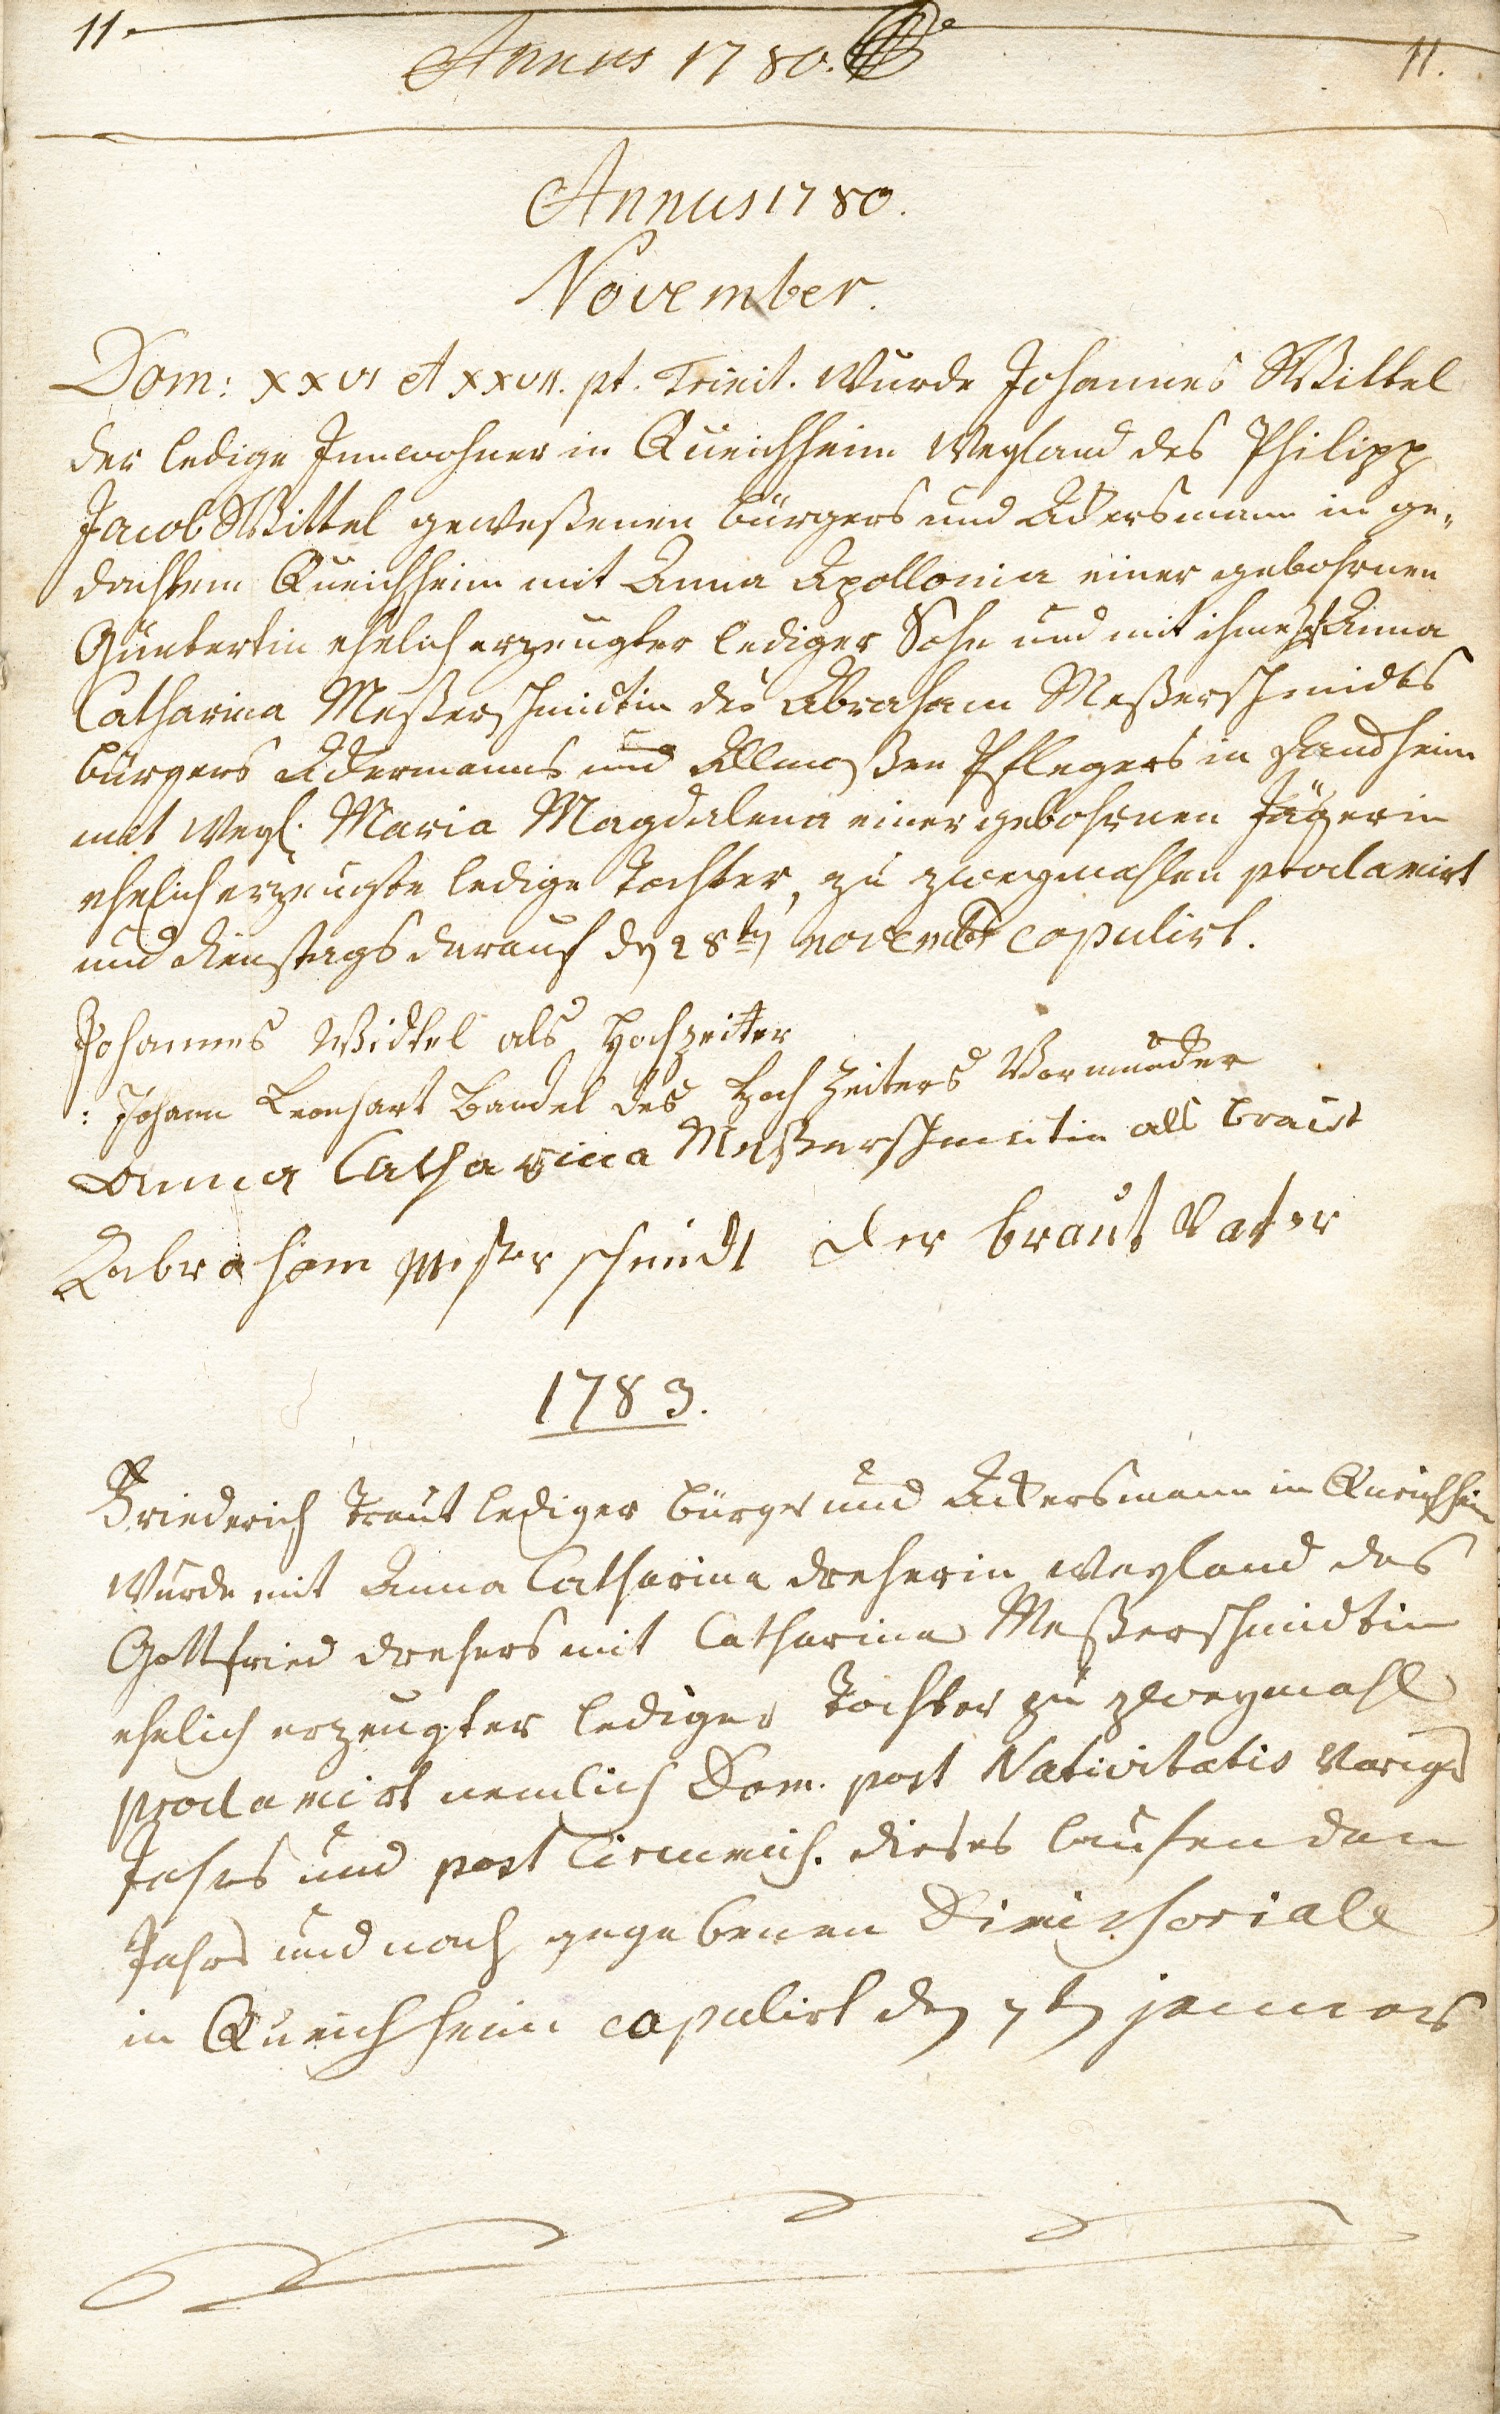 11.
Annus 1780.
11.
Annus 1780.
November.
Dom: XXVI et XXVII. pt. Trinit. wurde Johannes Wittel
der ledige Innwohner in Queichheim Weyland des Philipp
Jacob Wittel geweßenen bürgers und Ackersmann in ge„
dachtem Queichheim mit Anna Apollonia einer gebohrnen
ehelich erzeugter lediger Sohn und mit ihme Anna
Catharina Meßerschmidtin des Abraham Meßerschmidts
bürgers Ackermanns und Allmoßen Pflegers in
mit weyl. Maria Magdalena einer gebohrnen Jägerin
ehelich erzeugte ledige Tochter, zu zweymahlen proclamirt
und dienstags darauf d 28ten novembr copulirt.
Johannes Widtel als Hochzeiter
: Johann Leonhart Bandel des Hoch Zeiters Vormunder
Anna Catharina Meßerschmittin als braut
Aabraham Meserschmidt der braut Vater
1783.
Friederich Traut lediger bürger und Ackersmann in Queichheim
wurde mit Anna Catharina dreherin weyland des
Gottfried drehers mit Catharina Meßerschmidtin
ehelich erzeugter lediger Tochter zu zweymahl
proclamirt nemlich Dom. post Nativitatis Vorigs
Jahrs und post Circumcis. dieses laufenden
Jahrs und nach gegebenen Dimissoriale
in Queichheim copulirt d 7t januars